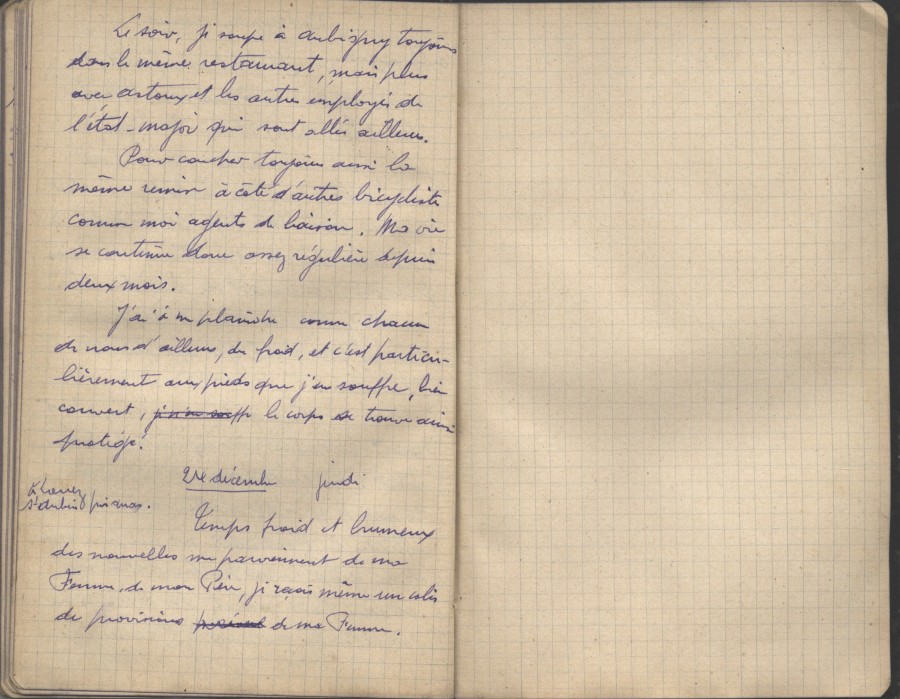 Le soir, je soupe à Aubigny toujours
dans le même restaurant, mais plus
avec Astoux et les autres employés de
l'état-major qui sont allés ailleurs.
Pour coucher toujours aussi la
même remise à côté d'autres bicyclistes
comme moi agents de liaison. Ma vie
se continue donc assez régulière depuis
deux mois.
J'ai à me plaindre comme chacun
de nous d'ailleurs, du froid, et c'est particu-
lièrement aux pieds que j'en souffre, bien
couvert, j'n'en souffre le corps se trouve ainsi
protégé.
décembre jeudi
à
St Aubin près Arras.
Temps froid et brumeux
des nouvelles me parviennent de ma
Femme, de mon Père, je reçois même un colis
de provisions de ma Femme.